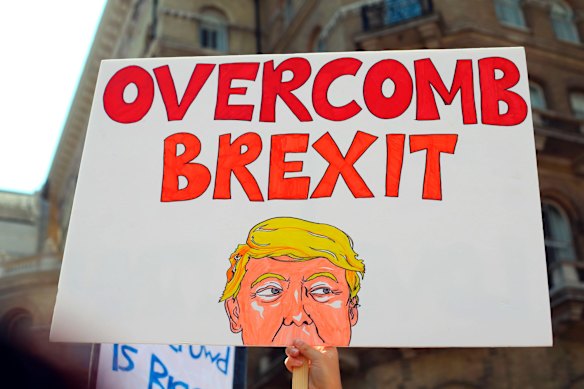 OVERCOMB
BREXIT
Is Br